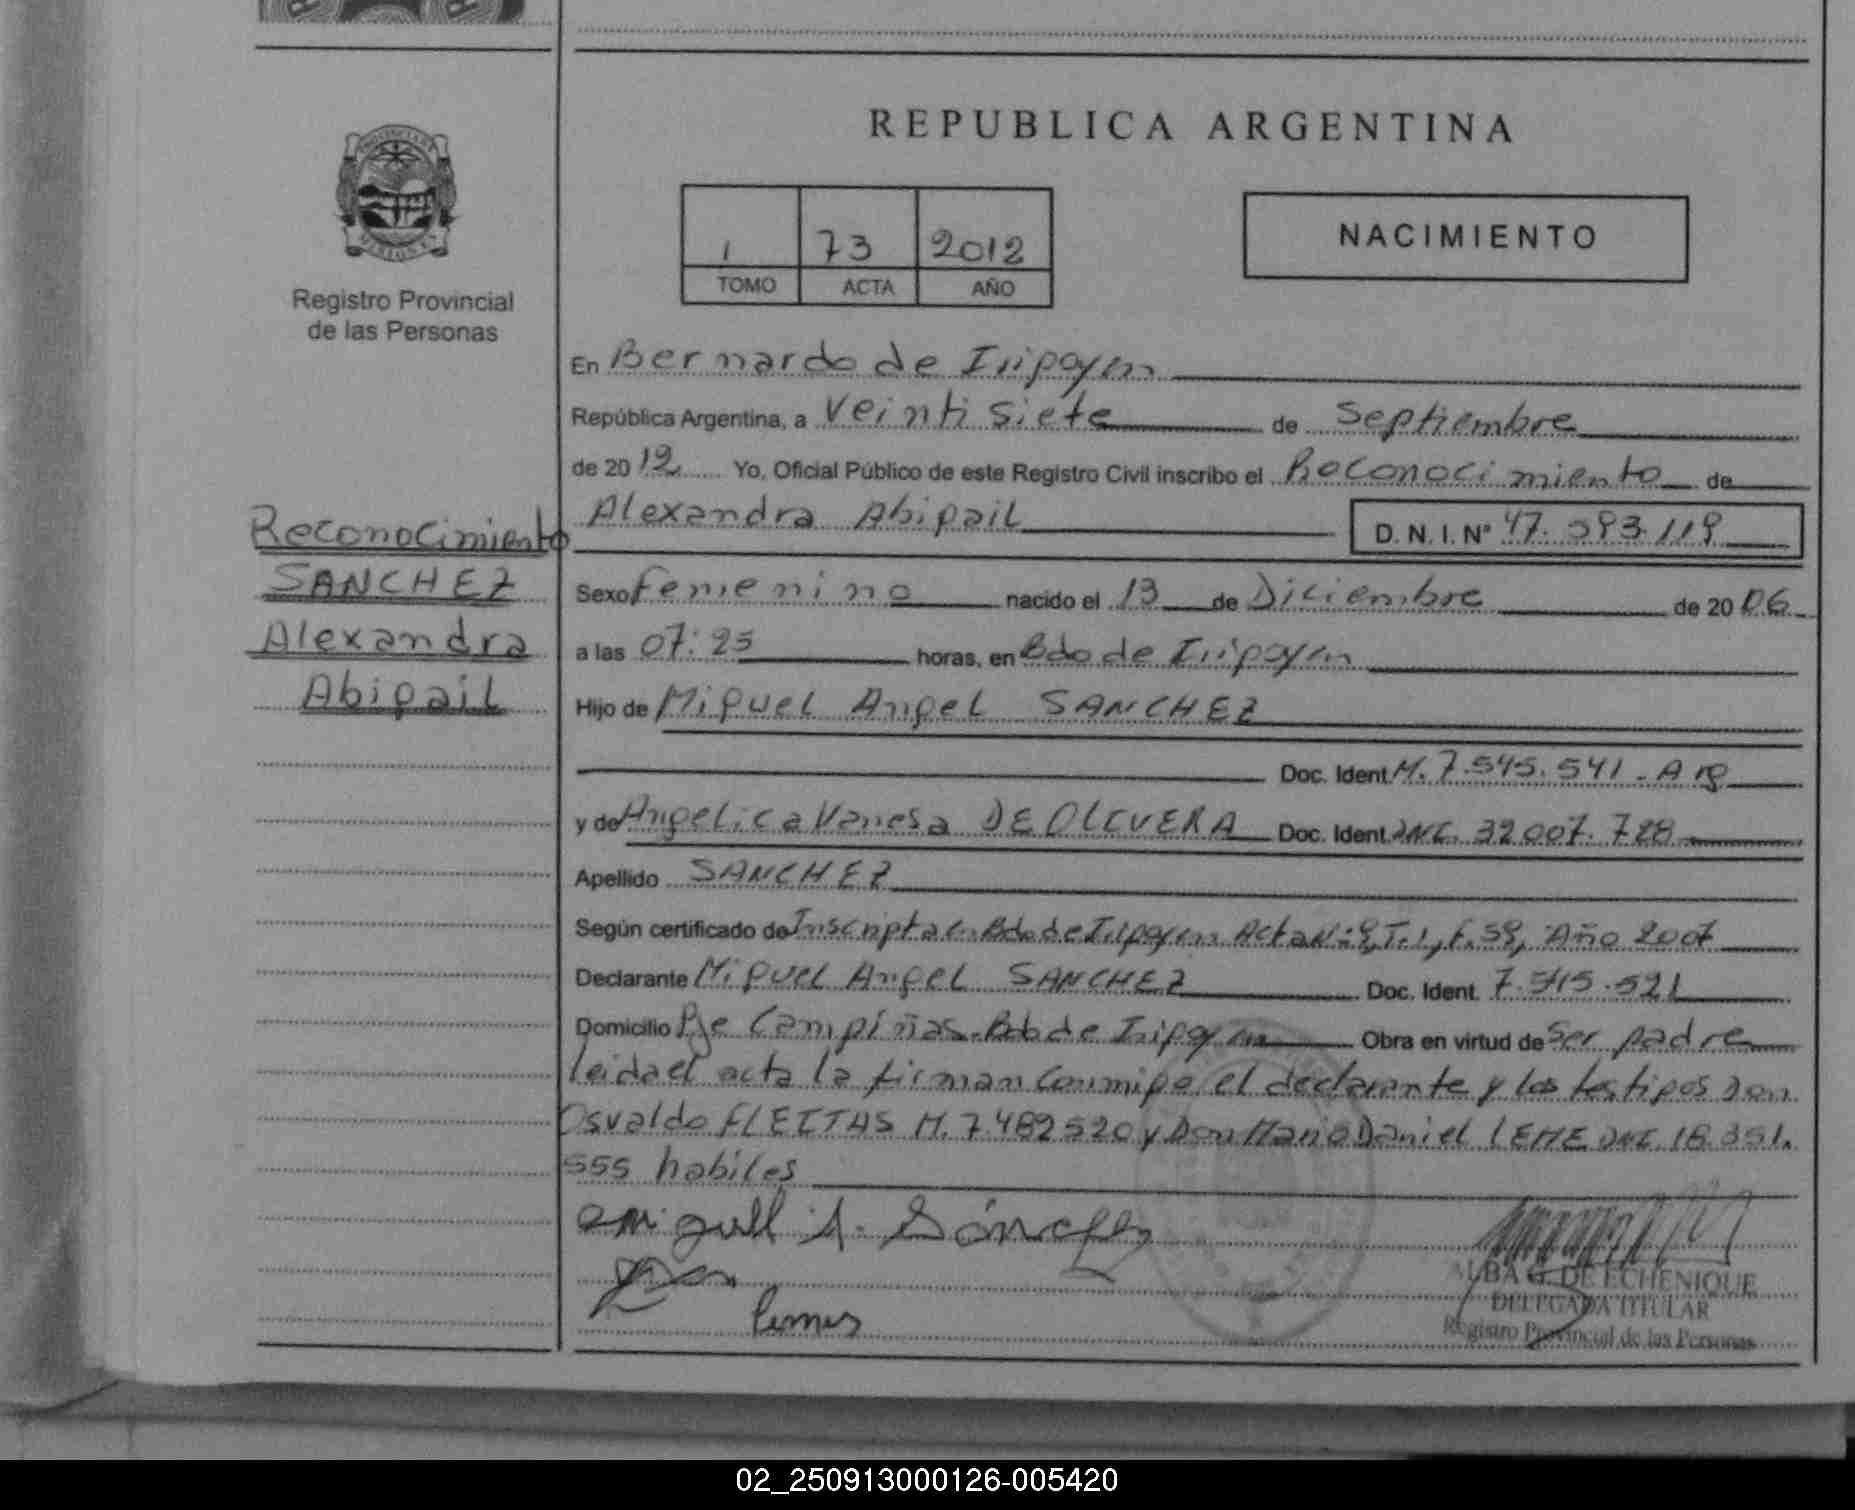 REPUBLICA ARGENTINA
1 73 2012
TOMO ACTA AÑO
NACIMIENTO
Registro Provincial
de las Personas
En Bernardo de Irigoyen
República Argentina, a Veintisiete de Septiembre
de 2012 Yo, Oficial Público de este Registro Civil inscribo el Reconocimiento de
Alexandra Abigail D. N. I. Nº 47.593.119
Reconocimiento
SANCHEZ
Alexandra
Abigail
Sexo Femenino nacido el 13 de Diciembre de 2006
a las 07:25 horas, en Bdo de Irigoyen
Hijo de Miguel Angel SANCHEZ
Doc. Ident. M. 7.545.541. Arg
y de Angelica Vanesa DE OLIVERA Doc. Ident. DNI. 32.007.728
Apellido SANCHEZ
Según certificado de Inscripta en Bdo de Irigoyen Acta Nº: 9, T. 1, F. 59, Año 2007
Declarante Miguel Angel SANCHEZ Doc. Ident. 7.545.521
Domicilio Pje Campiñas. Bdo de Irigoyen Obra en virtud de Ser padre
leida el acta la firman conmigo el declarante y los testigos Don
Osvaldo FLEITAS M. 7.482520 y Don Mario Daniel LEME DNI. 18.351.
555 habiles
Miguel A. Sánchez
ALBA G. DE ECHENIQUE
DELEGADA TITULAR
Registro Provincial de las Personas
02_250913000126-005420